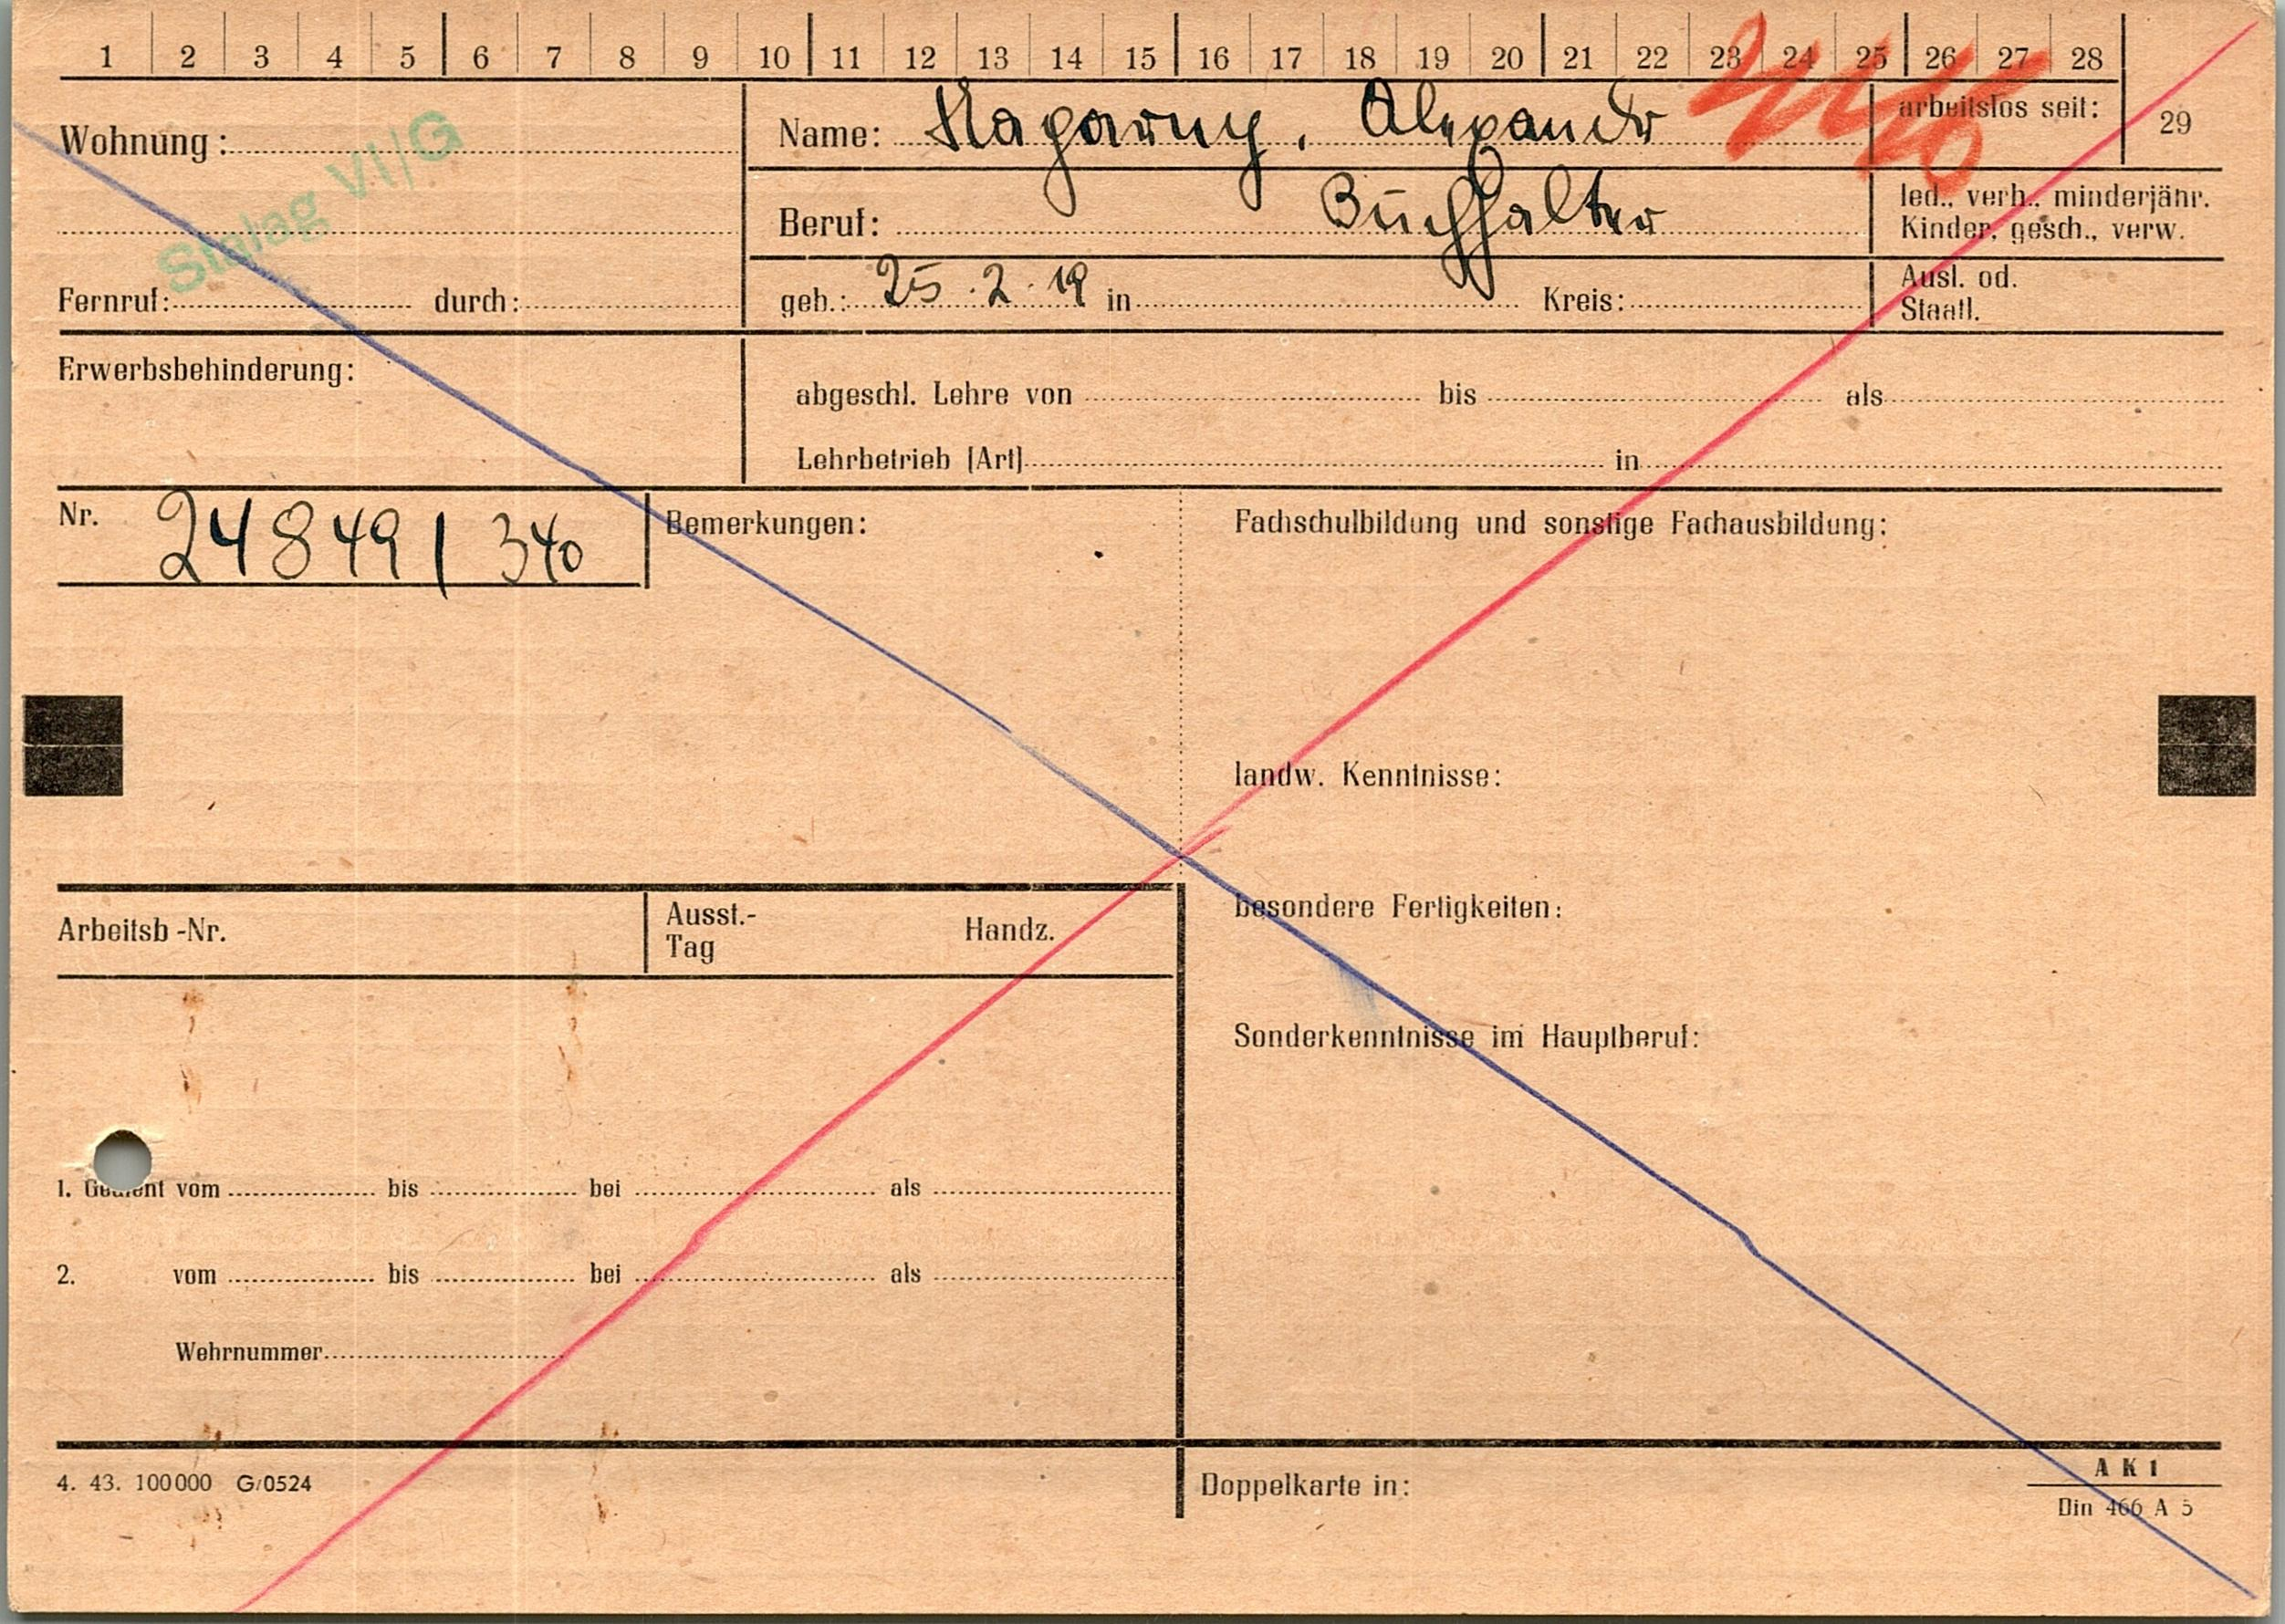 1 2 3 4 5 6 7 8 9 10 11 12 13 14 15 16 17 18 19 20 21 22 23 24 25 26 27 28
29
Wohnung:
Stalag VI/G
Fernruf: durch:
Name: Nagarny, Alexandr
arbeitslos seit:
Beruf: Buchhalter
led., verh., minderjähr.
Kinder, gesch., verw.
geb.: 25.2.19 in Kreis:
Ausl. od.
Staatl.
Erwerbsbehinderung:
abgeschl. Lehre von bis als
Lehrbetrieb (Art) in
Nr. 24849 / 340
Bemerkungen:
Fachschulbildung und sonstige Fachausbildung:
landw. Kenntnisse:
besondere Fertigkeiten:
Sonderkenntnisse im Hauptberuf:
Arbeitsb-Nr.
Ausst.-
Tag
Handz.
1. Gedient vom bis bei als
2. vom bis bei als
Wehrnummer
4. 43. 100000 G/0524
Doppelkarte in:
A K 1
Din 466 A 5